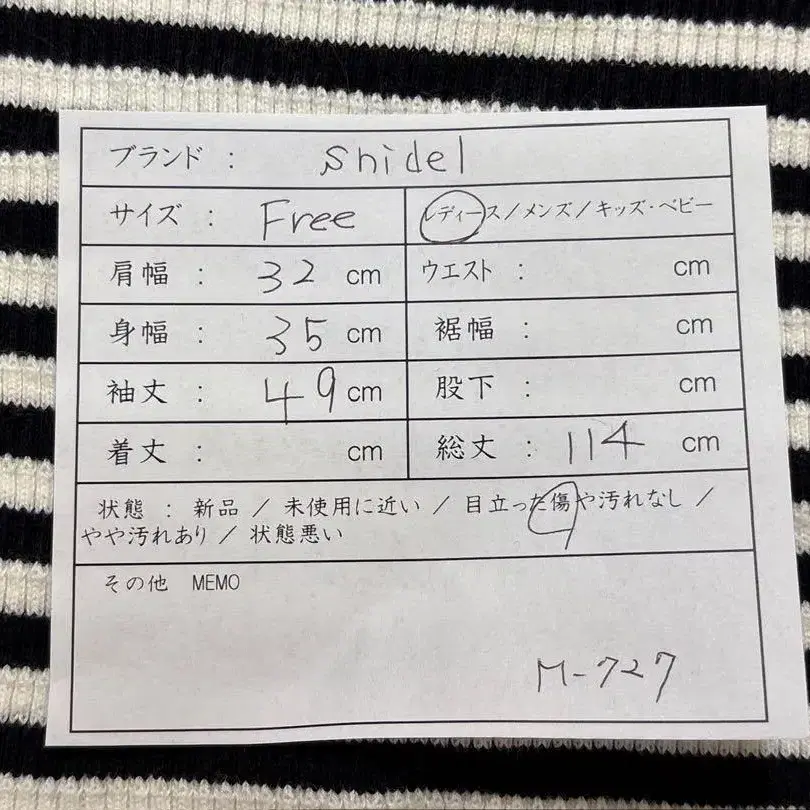 ブランド : snidel
サイズ : Free レディース/メンズ/キッズ・ベビー
肩幅 : 32 cm ウエスト : cm
身幅 : 35 cm 裾幅 : cm
袖丈 : 49 cm 股下 : cm
着丈 : cm 総丈 : 114 cm
状態 : 新品 / 未使用に近い / 目立った傷や汚れなし /
やや汚れあり / 状態悪い
その他 MEMO
M-727